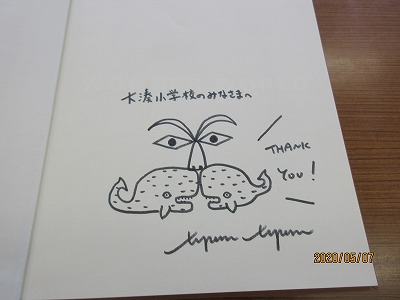 大湊小学校のみなさまへ
THANK
YOU!
tupera tupera
2020/05/07